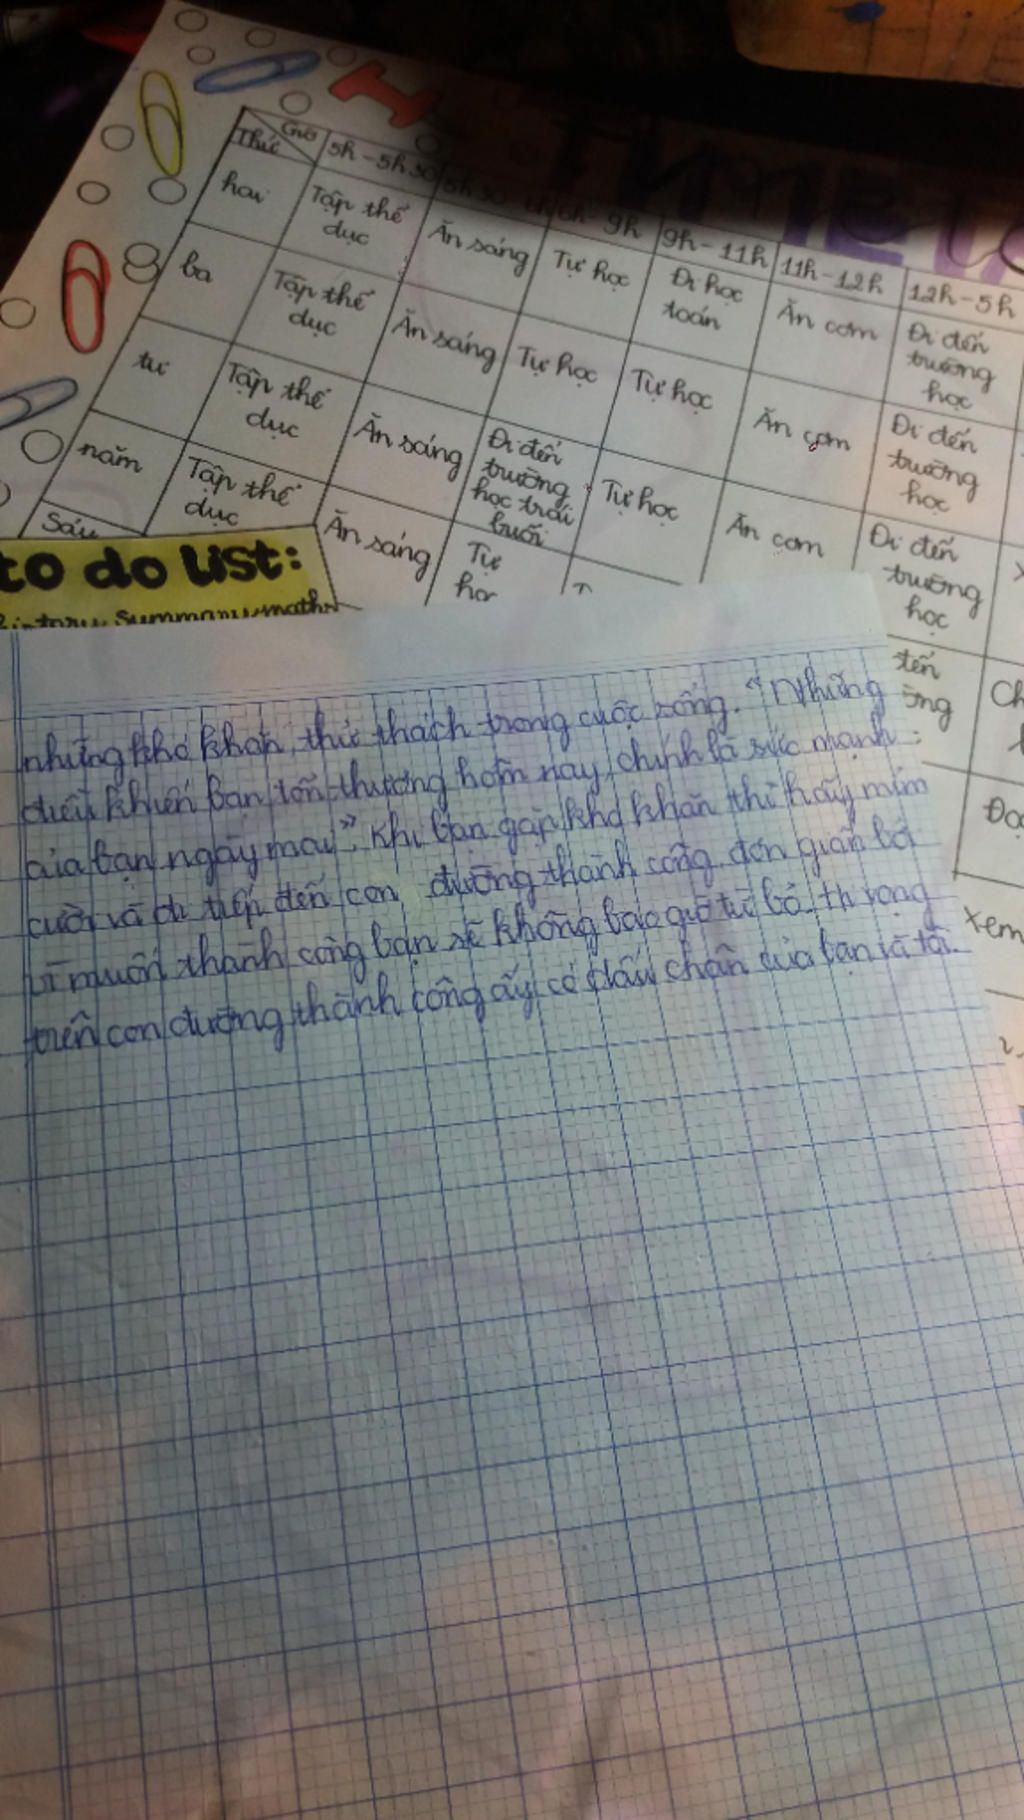 TIMETA
Thứ Giờ 5h-5h30 5h30 6h-9h 9h-11h 11h-12h 12h-5h
hai Tập thể dục Ăn sáng Tự học Đi học toán Ăn cơm Đi đến trường học
ba Tập thể dục Ăn sáng Tự học Tự học Ăn cơm Đi đến trường học
tư Tập thể dục Ăn sáng Đi đến trường học trái buổi Tự học Ăn cơm Đi đến trường học
năm Tập thể dục Ăn sáng Tự học
Sáu
to do list:
history summary maths
những khó khăn, thử thách trong cuộc sống. "Những
điều khiến bạn tổn thương hôm nay, chính là sức mạnh
của bạn ngày mai". Khi bạn gặp khó khăn thì hãy mỉm
cười và đi tiếp đến con đường thành công đơn giản bởi
vì muốn thành công bạn sẽ không bao giờ từ bỏ, hi vọng
trên con đường thành công ấy có dấu chân của bạn và tôi.